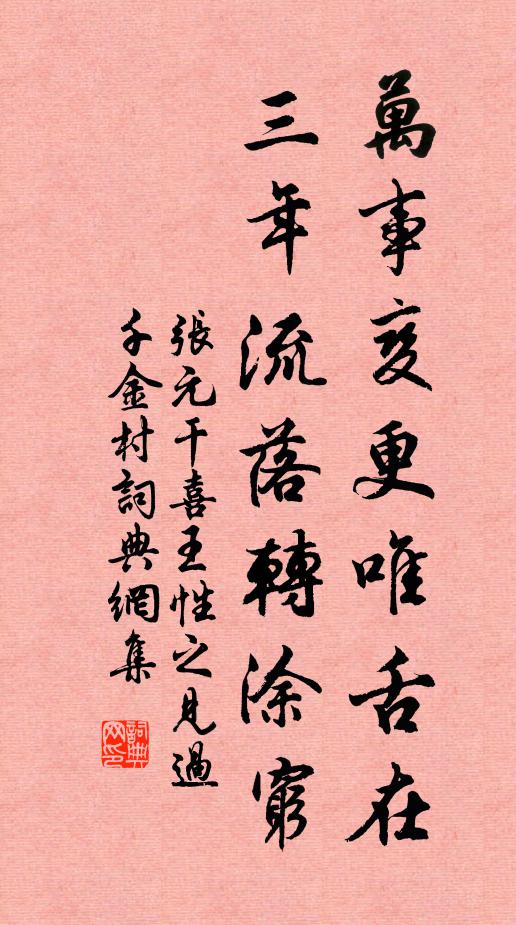 萬事变更唯舌在
三年流落轉涂窮
張元干喜王性之見過
千金村詞典網集
詞典
网印